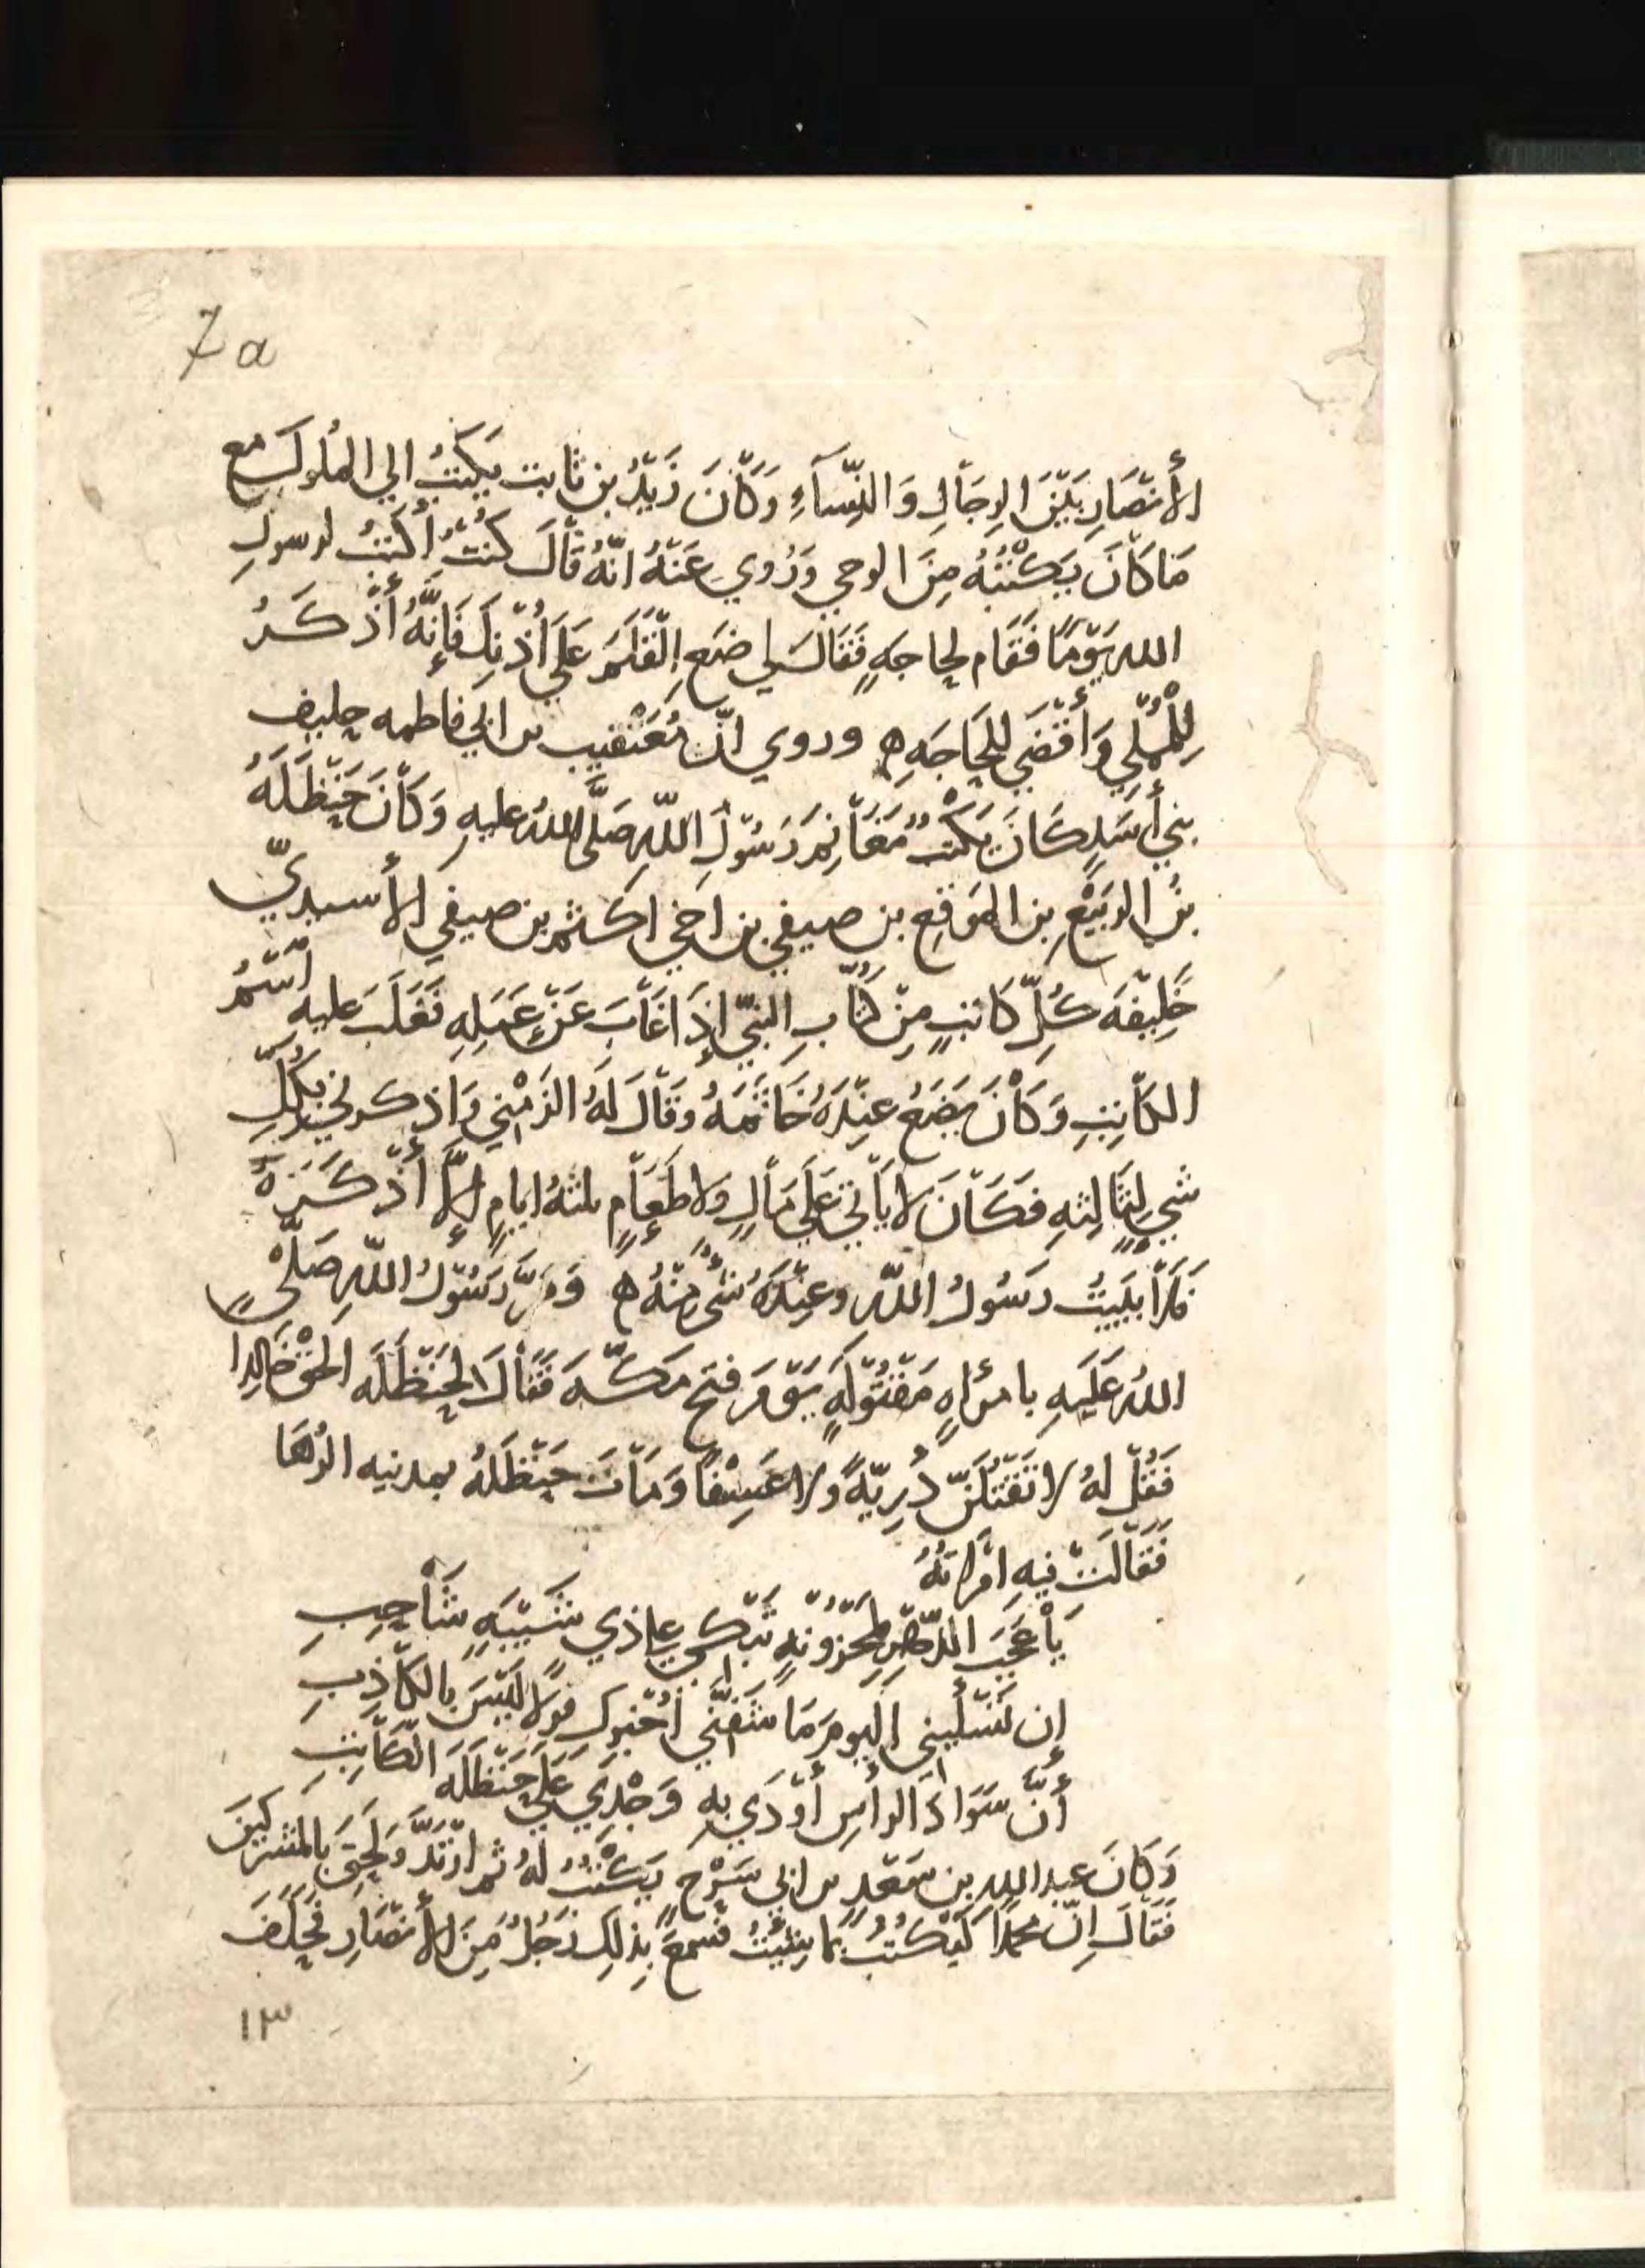 7a
الأنصَارِ بَيْنَ الرِجَالِ وَالنِّسَآءِ وَكَانَ زَيْدُ بن ثابت يَكتبُ الي الملُوك مع
مَا كَانَ يَكْتُبُهُ مِنَ الوحي وَرُوي عَنْهُ انّهُ قَالَ كنتُ أكتبُ لرسولِ
الله يَوْمًا فَقَام لحاجهٍ فَقَالَ لي ضَعِ الْقَلَمَ عَلَي أُذْنِكَ فَإنَّهُ أذْكَرُ
لِلْمُمْلي وَأقْضَي لِلحَاجَهِ ه وروي انّ مُعَيْقيب بن ابي فاطمه حليف
بني أسَدٍ كَانَ يَكتُبُ مَغَانِمَ رَسُولِ اللّهِ صَلَّى اللهُ عليهِ وَكَانَ حَنْظَلَهُ
بنُ الرَبيْعِ بن المرَقعِ بن صيفي بن اخي اكثم بن صيفي الأسيديّ
خَلِيْفَه كُلّ كَاتبٍ مِنْ كُتّابِ النبيّ إذَا غَابَ عَنْ عَمَلِهِ فَغَلَبَ عليه اسْمُ
الكَاتِبِ وَكَانَ يَضَعُ عِنْدَهُ خَاتَمَهُ وقَالَ لَهُ الزَمْني وَاذكرني بكُلّ
شيٍ لِثَالِثهِ فكَانَ لا يَأتي عَلَي مَالٍ ولا طَعَامٍ ثلثهُ ايامٍ إلَّا أذْكَرَهُ
فَلاَ يَبيتُ رَسُولُ اللّهِ وعِنْدَهُ شَيْءٌ مِنْهُ ه وَمَرَّ رَسُوْلُ اللّهِ صَلّى
اللهُ عَلَيهِ بامرأهٍ مَقْتُوْلَهٍ يَوْمَ فتحِ مَكّهَ فَقَالَ لِحَنْظَلَه الحَقْ خَالِدا
فَقُلْ لهُ لا تَقْتُلَنّ ذُرِيّهً ولا عَسِيْفًا وَمَاتَ حَنْظَلهُ بمدينه الرُهَا
فَقَالَتْ فيهِ امْرَاتهُ
يَا عَجَبَ الدّهْرِ لِمَحْزُوْنهٍ تَبْكي علي ذي شَيْبَهٍ شَاحِبِ
إن تَسْأليني اليومَ مَا شَفّني أُخْبركِ قَولاً لَيْسَ بالكَاذِبِ
أنّ سَوَادَ الرأسِ أوْدَي بِهِ وَجْدِي عَلَي حَنْظَلَه الكَاتِبِ
وَكَانَ عبد اللهِ بن سَعْدِ بن ابي سَرْحٍ يَكْتُبُ لهُ ثم ارْتَدَّ وَلَحِقَ بالمُشركينَ
فَقَالَ إنّ محمدًا لَيَكْتُبُ بما شِئْتُ فَسمعَ بذلِكَ رَجُلٌ مِنَ الأنْصَارِ فَحَلَفَ
١٣